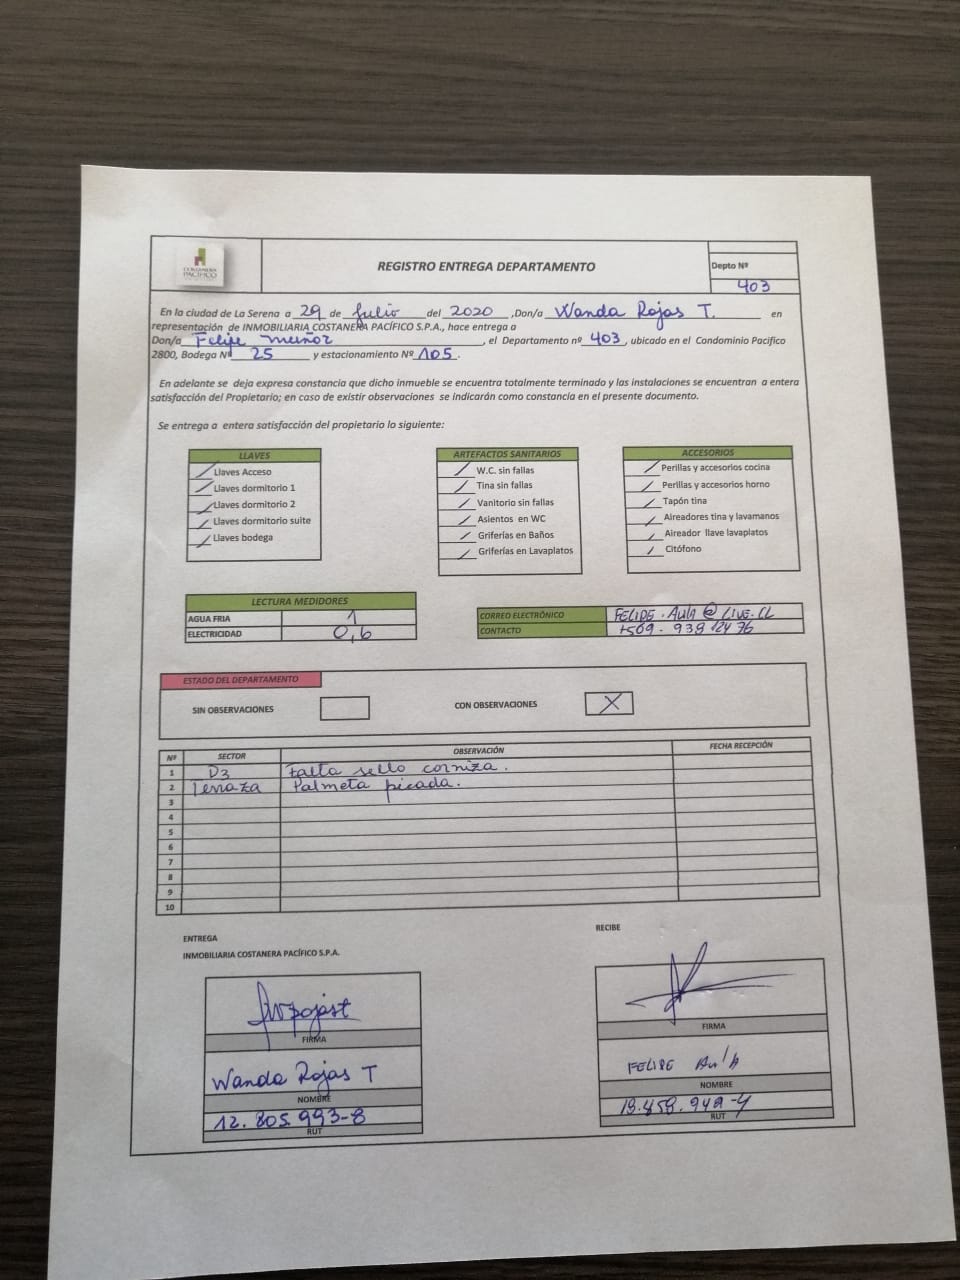 COSTANERA
PACIFICO
REGISTRO ENTREGA DEPARTAMENTO
Depto Nº
403
En la ciudad de La Serena a 29 de Julio del 2020 ,Don/a Wanda Rojas T. en
representación de INMOBILIARIA COSTANERA PACÍFICO S.P.A., hace entrega a
Don/a Felipe muñoz , el Departamento nº 403, ubicado en el Condominio Pacifico
2800, Bodega Nº 25 y estacionamiento Nº 105.
En adelante se deja expresa constancia que dicho inmueble se encuentra totalmente terminado y las instalaciones se encuentran a entera
satisfacción del Propietario; en caso de existir observaciones se indicarán como constancia en el presente documento.
Se entrega a entera satisfacción del propietario lo siguiente:
LLAVES
Llaves Acceso
Llaves dormitorio 1
Llaves dormitorio 2
Llaves dormitorio suite
Llaves bodega
ARTEFACTOS SANITARIOS
W.C. sin fallas
Tina sin fallas
Vanitorio sin fallas
Asientos en WC
Griferías en Baños
Griferías en Lavaplatos
ACCESORIOS
Perillas y accesorios cocina
Perillas y accesorios horno
Tapón tina
Aireadores tina y lavamanos
Aireador llave lavaplatos
Citófono
LECTURA MEDIDORES
AGUA FRIA 1
ELECTRICIDAD 0,6
CORREO ELECTRÓNICO FELIPE.AULA@LIVE.CL
CONTACTO +569-
ESTADO DEL DEPARTAMENTO
SIN OBSERVACIONES
CON OBSERVACIONES X
Nº SECTOR OBSERVACIÓN FECHA RECEPCIÓN
1 D3 Falta sello corniza.
2 Terraza Palmeta picada.
3
4
5
6
7
8
9
10
ENTREGA
INMOBILIARIA COSTANERA PACÍFICO S.P.A.
FIRMA
Wanda Rojas T
NOMBRE
12.805.993-8
RUT
RECIBE
FIRMA
FELIPE
NOMBRE
RUT